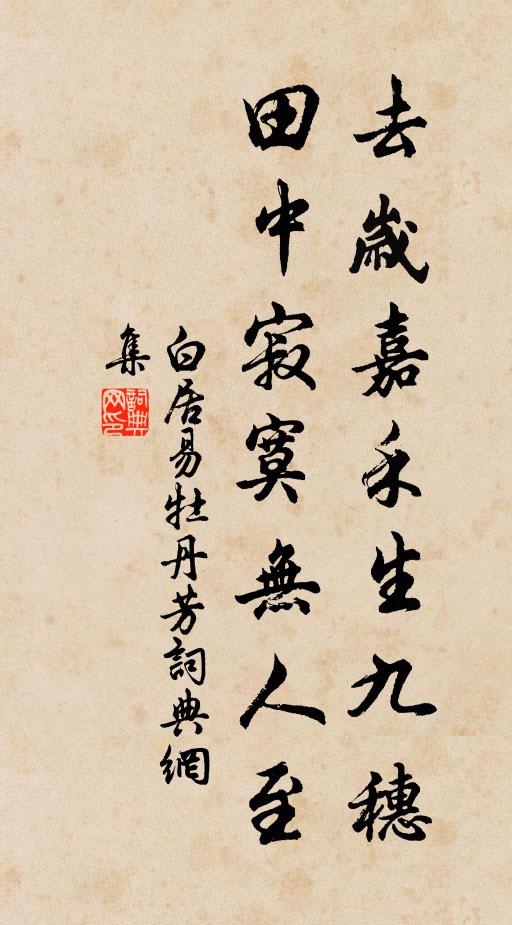 去歲嘉禾生九穗
田中寂寞無人至
白居易牡丹芳詞典網
集
詞典
网印